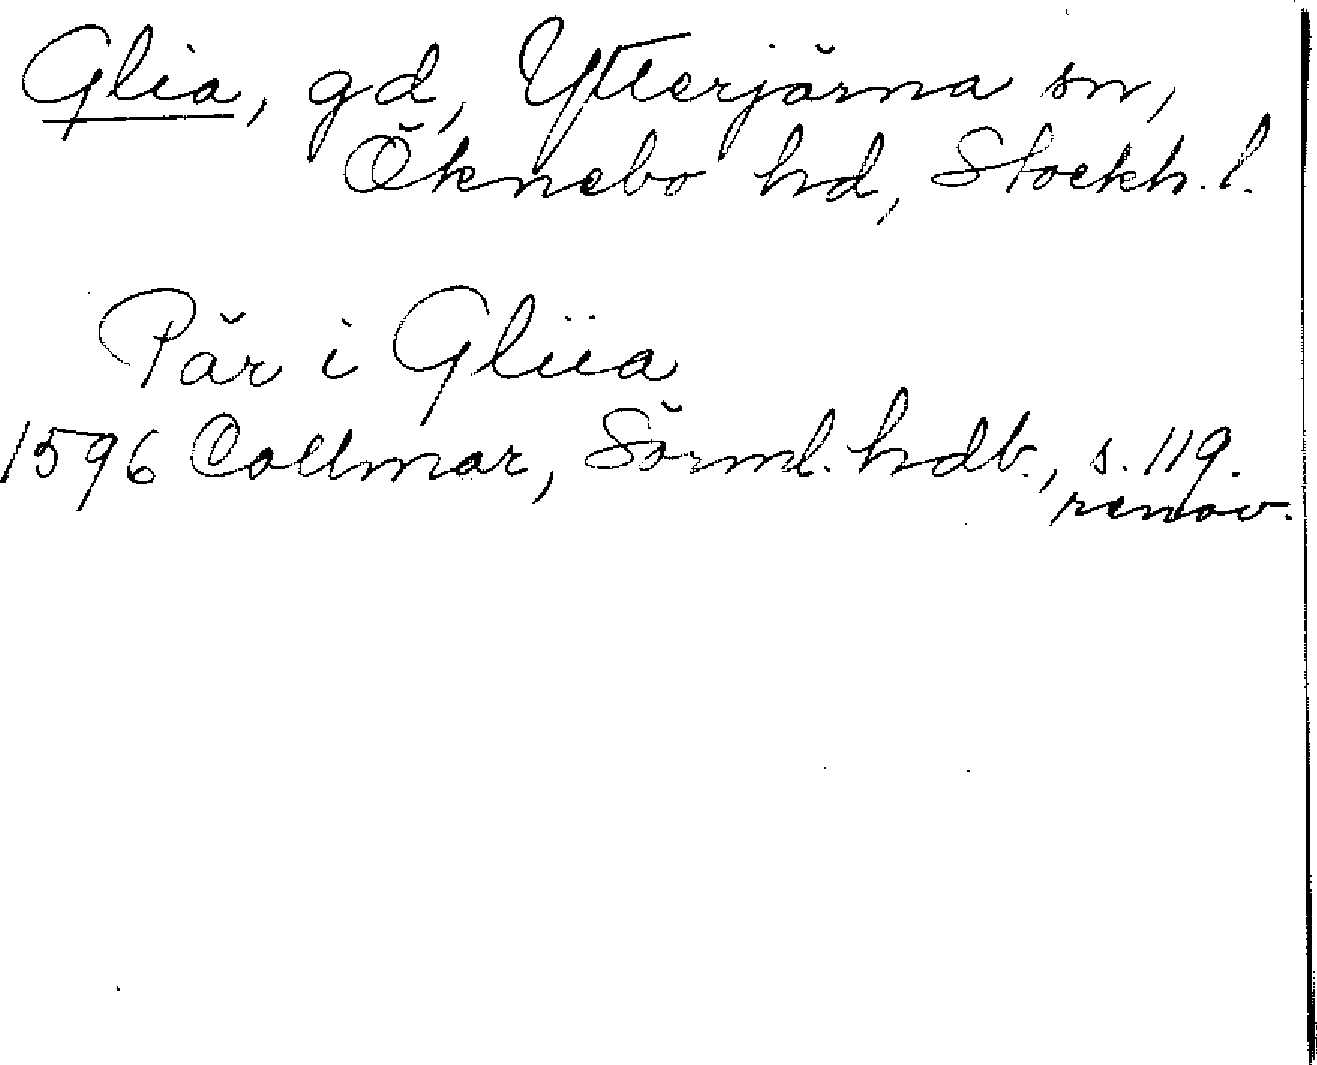 Glia, gd, Ytterjärna sn,
Öknebo hd, Stockh. l.
Pär i Gliia
1596 Collmar, Sörml. hdb., s. 119.
renov.